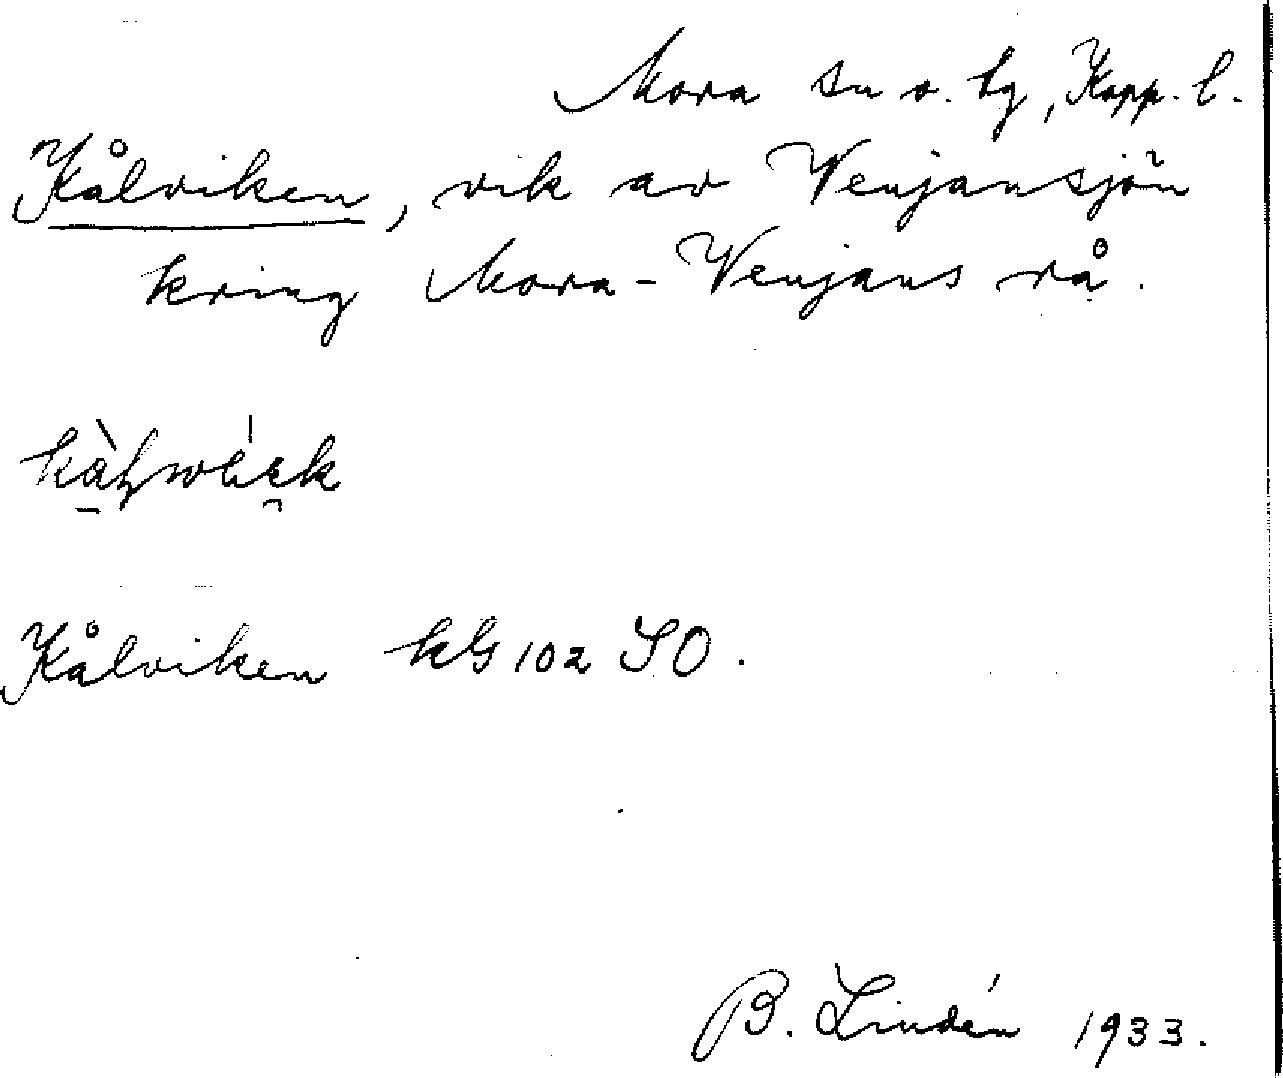 Mora sn o. tg, Kopp. l.
Kålviken, vik av Venjansjön
kring Mora-Venjans rå.
Kålviken kG 102 SO.
B. Lindén 1933.